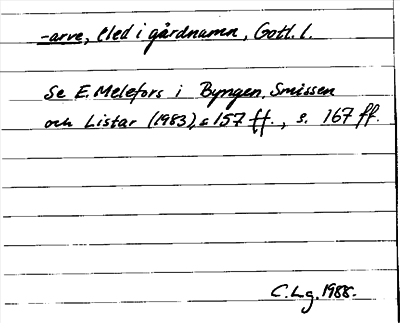 -arve, eled i gårdnamn, Gotl. l.
Se E. Melefors i Byngen, Smissen
och Listar (1983), s 157 ff., s. 167 ff.
C. Lg. 1988.